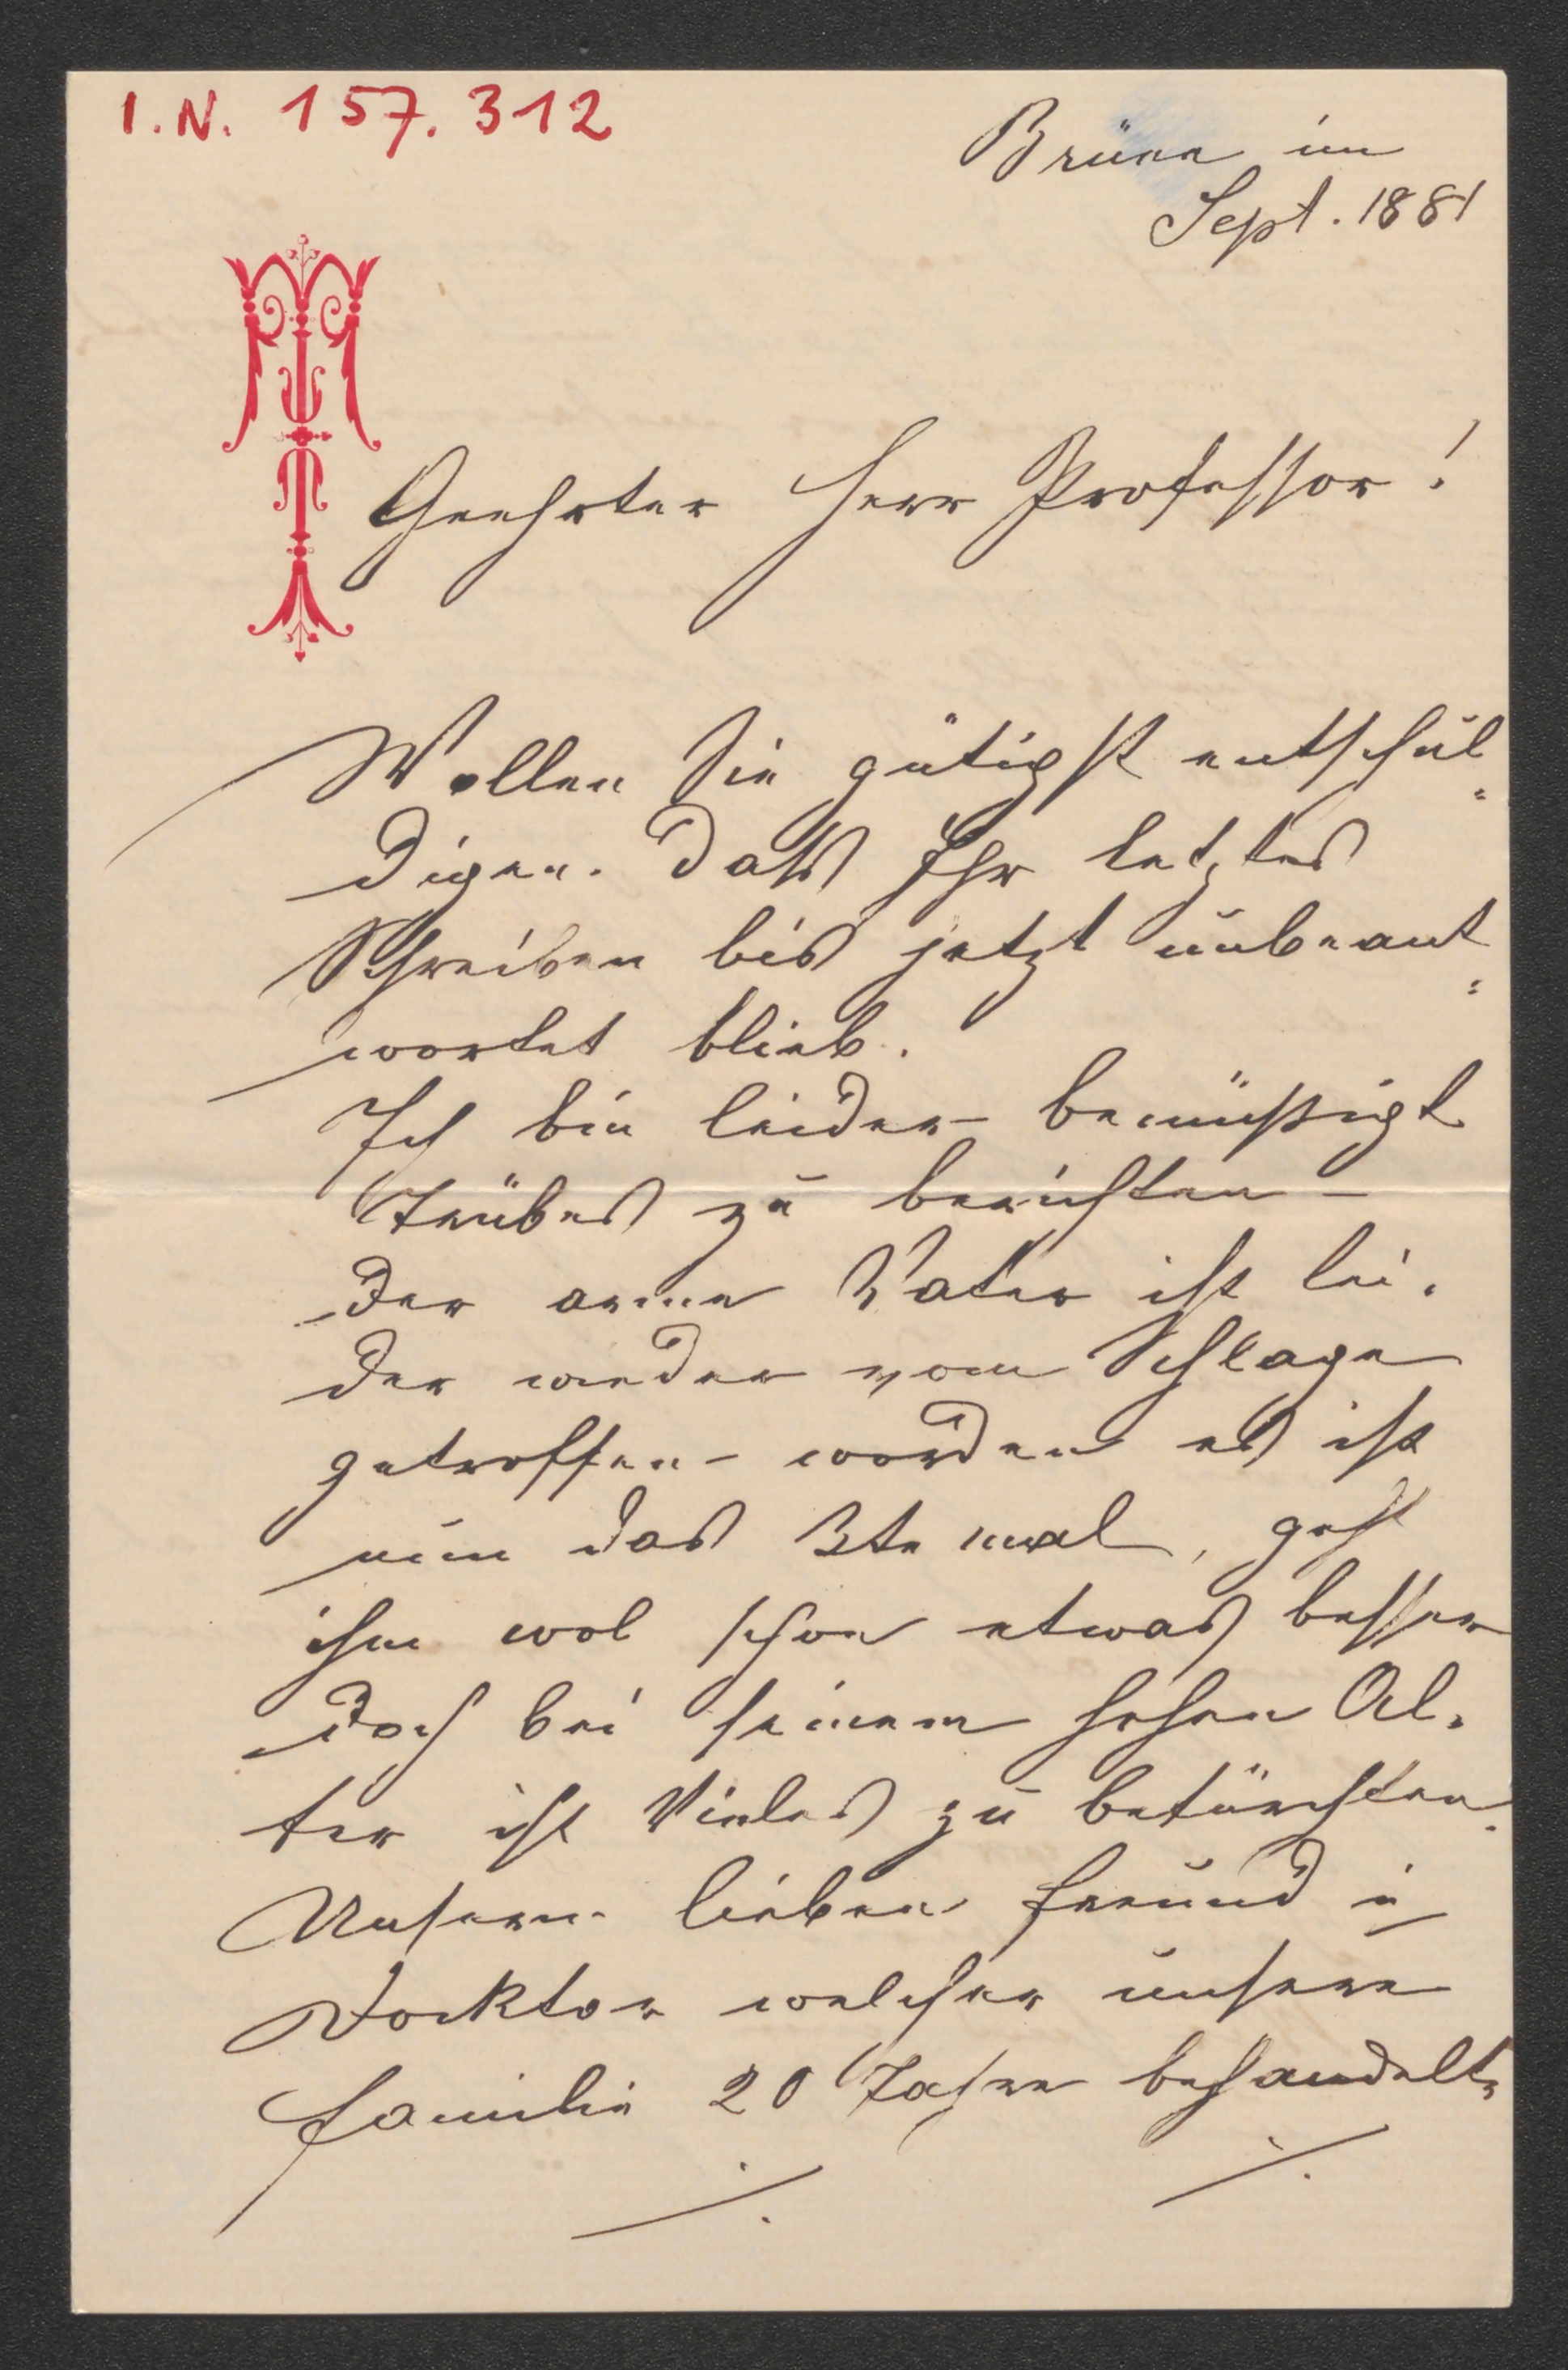 I.N. 157.312
Brünn im
Sept. 1881
Geehrter Herr Professor!
Wollen Sie gütigst entschul-
digen. daß Ihr letztes
Schreiben bis jetzt unbeant=
wortet blieb.
Ich bin leider bemüßigt
Trübes zu berichten –
der arme Vater ist lei-
der wieder vom Schlage
getroffen worden es ist
nun das 3te mal, geht
ihm wol schon etwas besser
doch bei seinem hohen Al-
ter ist Vieles zu befürchten.
Unsern lieben Freund u
Docktor welcher unsere
Familie 20 Jahre behandelte
./. ./.